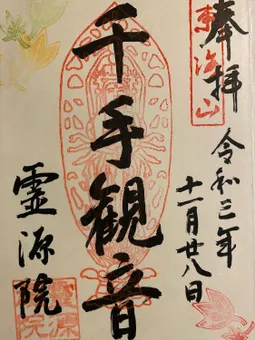 奉拝
東海山
令和三年
十一月廿八日
千手観音
霊源院
霊源院